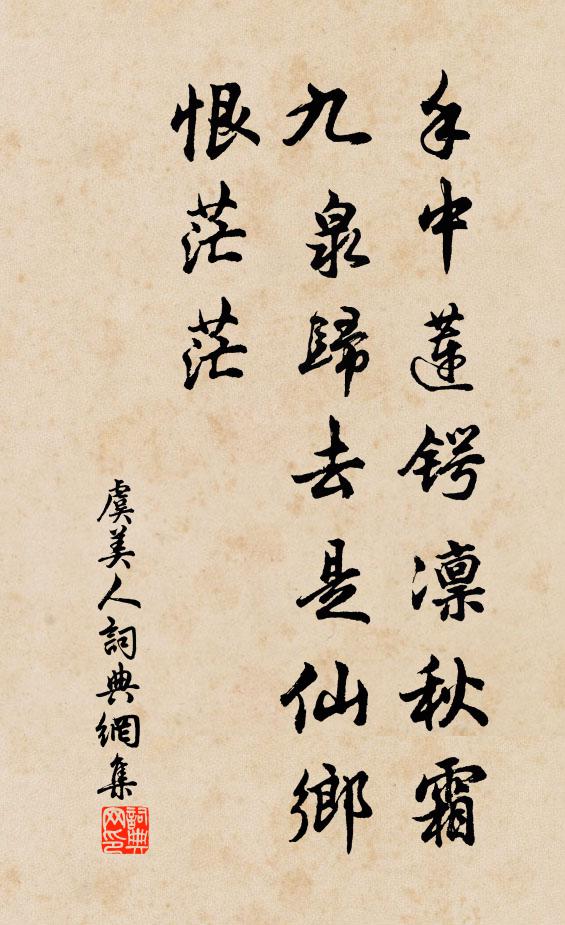 手中蓮锷凛秋霜
九泉歸去是仙鄉
恨茫茫
虞美人詞典網集
詞典网印